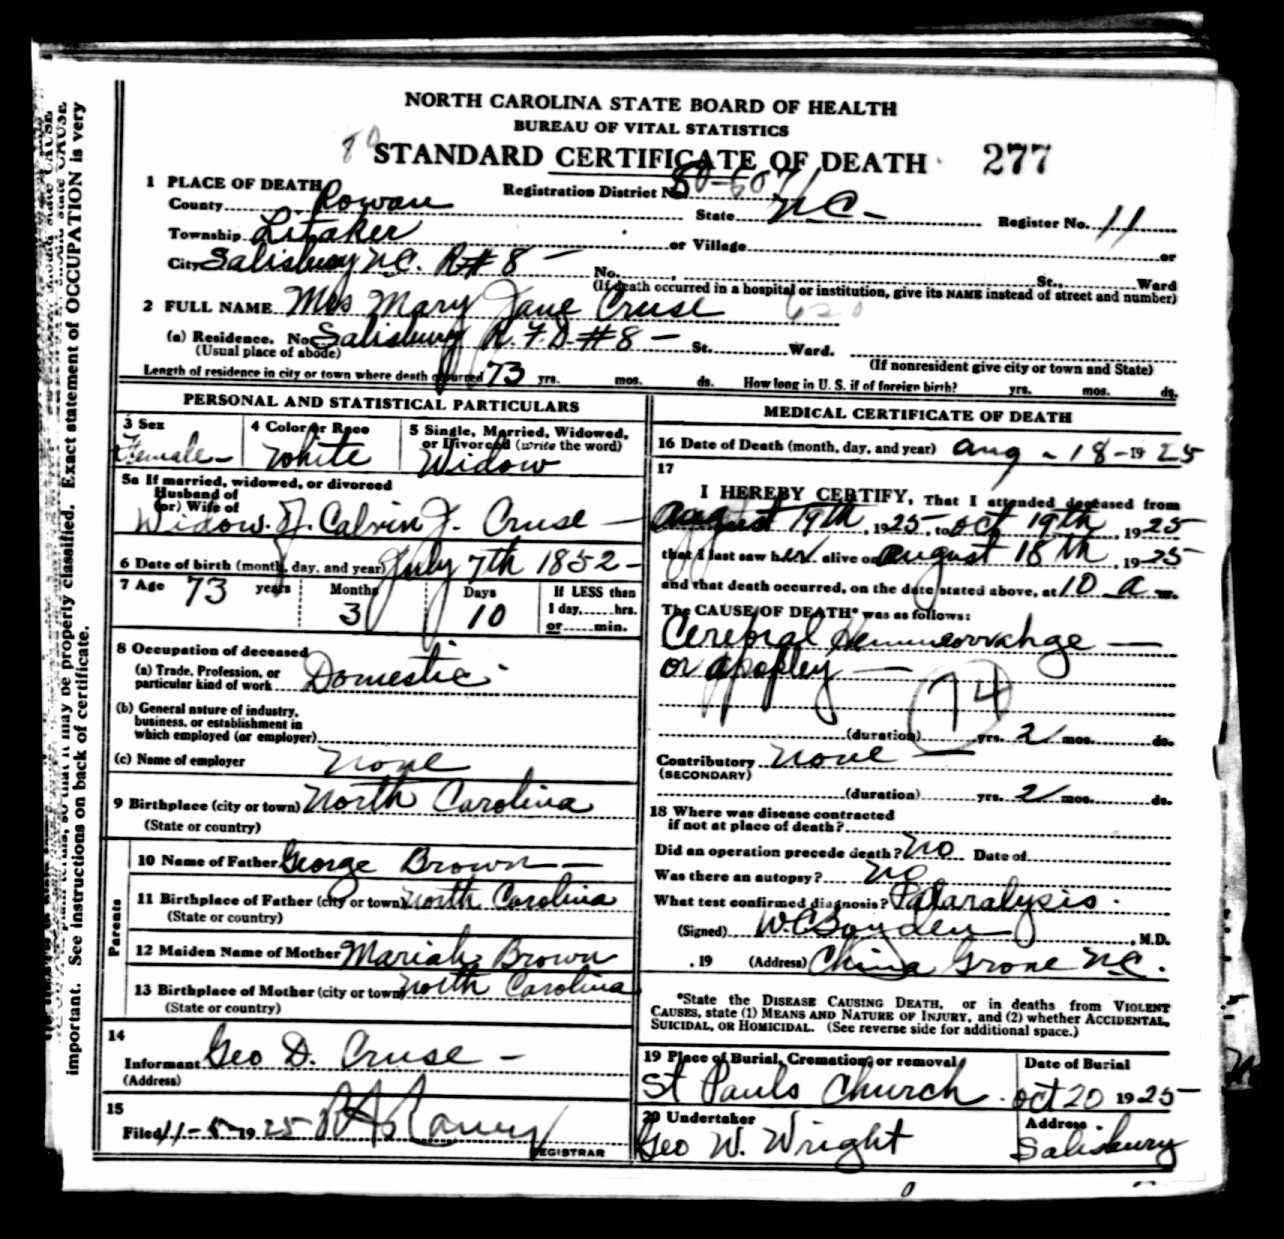 NORTH CAROLINA STATE BOARD OF HEALTH
BUREAU OF VITAL STATISTICS
STANDARD CERTIFICATE OF DEATH 277
1 PLACE OF DEATH Registration District No. 80-6071
County Rowan State N.C. Register No. 11
Township Litaker or Village or
City Salisbury N.C. R#8 No. St., Ward
(If death occurred in a hospital or institution, give its NAME instead of street and number)
2 FULL NAME Mrs Mary Jane Cruse 620
(a) Residence. No. Salisbury R.F.D. #8 St. Ward.
(Usual place of abode) (If nonresident give city or town and State)
Length of residence in city or town where death occurred 73 yrs. mos. ds. How long in U. S. if of foreign birth? yrs. mos. ds.
PERSONAL AND STATISTICAL PARTICULARS
3 Sex 4 Color or Race 5 Single, Married, Widowed, or Divorced (write the word)
Female White Widow
5a If married, widowed, or divorced
Husband of
(or) Wife of
Widow. of. Calvin J. Cruse
6 Date of birth (month, day, and year) July 7th 1852
7 Age 73 years Months 3 Days 10 If LESS than
1 day, hrs.
or min.
8 Occupation of deceased
(a) Trade, Profession, or
particular kind of work Domestic
(b) General nature of industry,
business, or establishment in
which employed (or employer)
(c) Name of employer None
9 Birthplace (city or town) North Carolina
(State or country)
Parents
10 Name of Father George Brown
11 Birthplace of Father (city or town) North Carolina
(State or country)
12 Maiden Name of Mother Mariah Brown
13 Birthplace of Mother (city or town) North Carolina
(State or country)
14
Informant Geo D. Cruse
(Address)
15
Filed 11-5- 1925
REGISTRAR
MEDICAL CERTIFICATE OF DEATH
16 Date of Death (month, day, and year) Aug - 18 - 1925
17
I HEREBY CERTIFY, That I attended deceased from
August 19th, 1925 to Oct 19th, 1925
that I last saw her alive on August 18th, 1925
and that death occurred, on the date stated above, at 10 A m.
The CAUSE OF DEATH* was as follows:
Cerebral Hemmeorrahge
or apopley
74
(duration) yrs. 2 mos. ds.
Contributory None
(SECONDARY)
(duration) yrs. 2 mos. ds.
18 Where was disease contracted
if not at place of death?
Did an operation precede death? No Date of
Was there an autopsy? No
What test confirmed diagnosis? Palaralysis.
(Signed) , M.D.
, 19 (Address) China Grove N.C.
*State the DISEASE CAUSING DEATH, or in deaths from VIOLENT
CAUSES, state (1) MEANS AND NATURE OF INJURY, and (2) whether ACCIDENTAL,
SUICIDAL, OR HOMICIDAL. (See reverse side for additional space.)
19 Place of Burial, Cremation, or removal Date of Burial
St Pauls Church. Oct 20 1925
20 Undertaker Address
Geo W. Wright Salisbury
OCCUPATION is very
important. See instructions on back of certificate.
so that it may be properly classified. Exact statement of